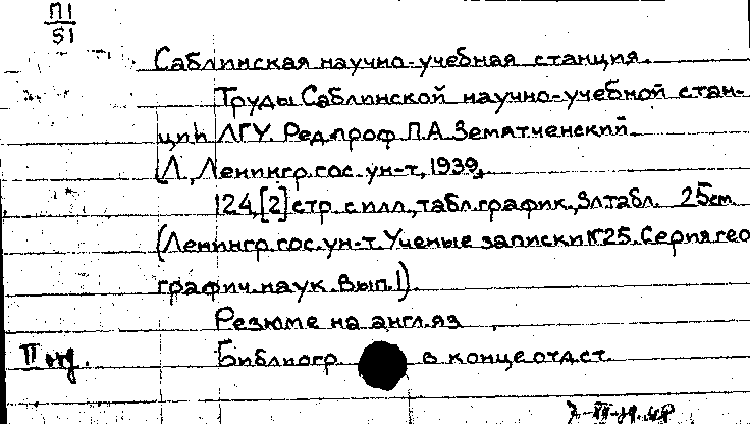 П1
51
Саблинская научно-учебная станция.
Труды Саблинской научно-учебной стан-
ции ЛГУ. Ред. проф. П.А. Земятченский.
Л., Ленингр. гос. ун-т, 1939.
124, [2] стр. с илл., табл. график., 3 л табл. 25 см
(Ленингр. гос. ун-т. Ученые записки №25. Серия гео
графич. наук. Вып. 1).
Резюме на англ. яз
II
Библиогр. в конце отд. ст.